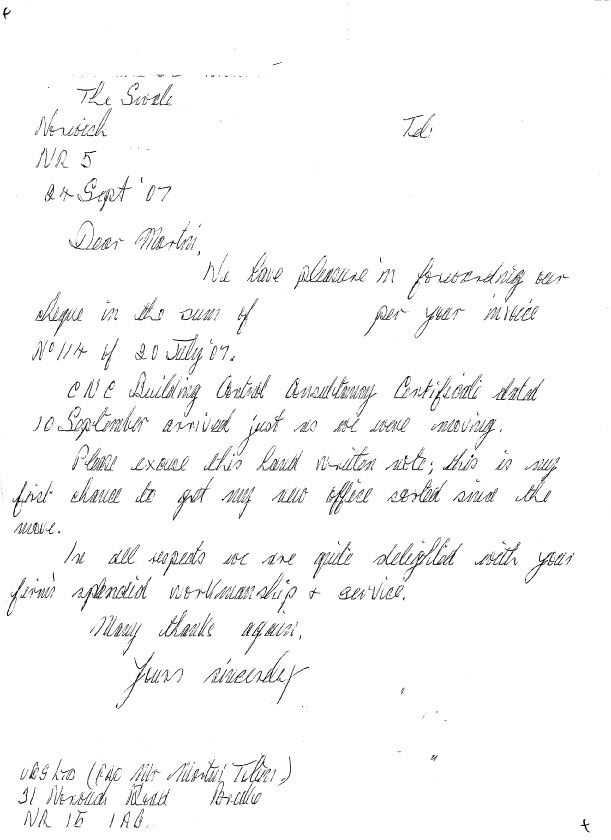 The Swale
Norwich
Tel:
NR 5
24 Sept '07
Dear Martin,
We have pleasure in forwarding our
cheque in the sum of per your invoice
No 114 of 20 July '07.
CNC Building Control Consultancy Certificate dated
10 September arrived just as we were moving.
Please excuse this hand written note; this is my
first chance to get my new office sorted since the
move.
In all respects we are quite delighted with your
firm's splendid workmanship + service.
Many thanks again.
Yours sincerely
Ltd ( Mr Martin )
31 Norwich Road
NR 15 1AB